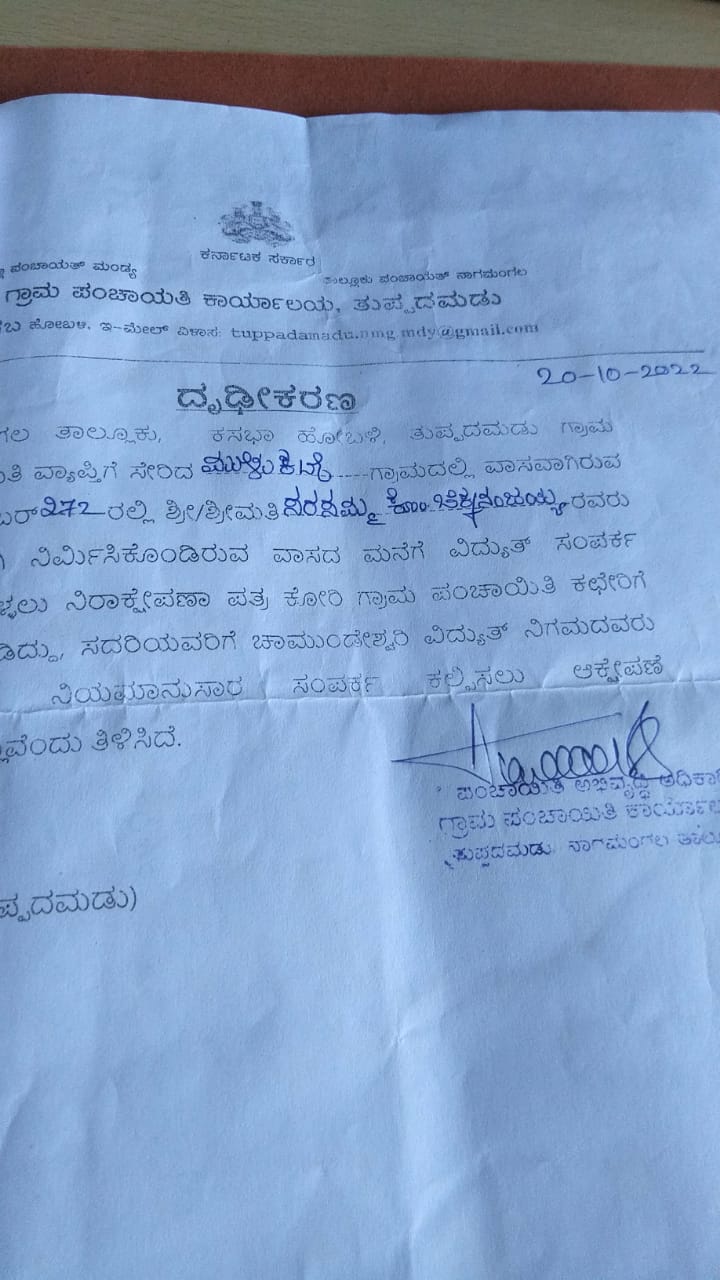 ಕರ್ನಾಟಕ ಸರ್ಕಾರ
ಪಂಚಾಯತ್ ಮಂಡ್ಯ ತಾಲ್ಲೂಕು ಪಂಚಾಯತ್ ನಾಗಮಂಗಲ
ಗ್ರಾಮ ಪಂಚಾಯತಿ ಕಾರ್ಯಾಲಯ, ತುಪ್ಪದಮಡು
ಹೋಬಳಿ, ಇ-ಮೇಲ್ ವಿಳಾಸ: tuppadamadu.nmg.mdy@gmail.com
20-10-2022
ದೃಢೀಕರಣ
ತಾಲ್ಲೂಕು, ಕಸಭಾ ಹೋಬಳಿ, ತುಪ್ಪದಮಡು ಗ್ರಾಮ
ವ್ಯಾಪ್ತಿಗೆ ಸೇರಿದ ಗ್ರಾಮದಲ್ಲಿ ವಾಸವಾಗಿರುವ
272 ರಲ್ಲಿ ಶ್ರೀ/ಶ್ರೀಮತಿ ರವರು
ನಿರ್ಮಿಸಿಕೊಂಡಿರುವ ವಾಸದ ಮನೆಗೆ ವಿದ್ಯುತ್ ಸಂಪರ್ಕ
ನಿರಾಕ್ಷೇಪಣಾ ಪತ್ರ ಕೋರಿ ಗ್ರಾಮ ಪಂಚಾಯಿತಿ ಕಛೇರಿಗೆ
ಸದರಿಯವರಿಗೆ ಚಾಮುಂಡೇಶ್ವರಿ ವಿದ್ಯುತ್ ನಿಗಮದವರು
ನಿಯಮಾನುಸಾರ ಸಂಪರ್ಕ ಕಲ್ಪಿಸಲು ಆಕ್ಷೇಪಣೆ
ತಿಳಿಸಿದೆ.
ಪಂಚಾಯಿತಿ ಅಭಿವೃದ್ಧಿ ಅಧಿಕಾರಿ
ಗ್ರಾಮ ಪಂಚಾಯಿತಿ
ತುಪ್ಪದಮಡು ನಾಗಮಂಗಲ